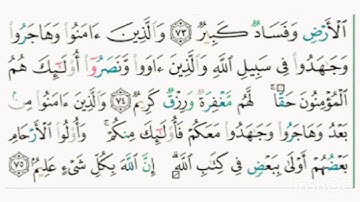 ٱلْأَرْضِ وَفَسَادٌ كَبِيرٌ ۝٧٣ وَٱلَّذِينَ ءَامَنُوا۟ وَهَاجَرُوا۟
وَجَٰهَدُوا۟ فِى سَبِيلِ ٱللَّهِ وَٱلَّذِينَ ءَاوَوا۟ وَّنَصَرُوٓا۟ أُو۟لَٰٓئِكَ هُمُ
ٱلْمُؤْمِنُونَ حَقًّا ۚ لَّهُم مَّغْفِرَةٌ وَرِزْقٌ كَرِيمٌ ۝٧٤ وَٱلَّذِينَ ءَامَنُوا۟ مِنۢ
بَعْدُ وَهَاجَرُوا۟ وَجَٰهَدُوا۟ مَعَكُمْ فَأُو۟لَٰٓئِكَ مِنكُمْ ۚ وَأُو۟لُوا۟ ٱلْأَرْحَامِ
بَعْضُهُمْ أَوْلَىٰ بِبَعْضٍ فِى كِتَٰبِ ٱللَّهِ ۗ إِنَّ ٱللَّهَ بِكُلِّ شَىْءٍ عَلِيمٌۢ ۝٧٥